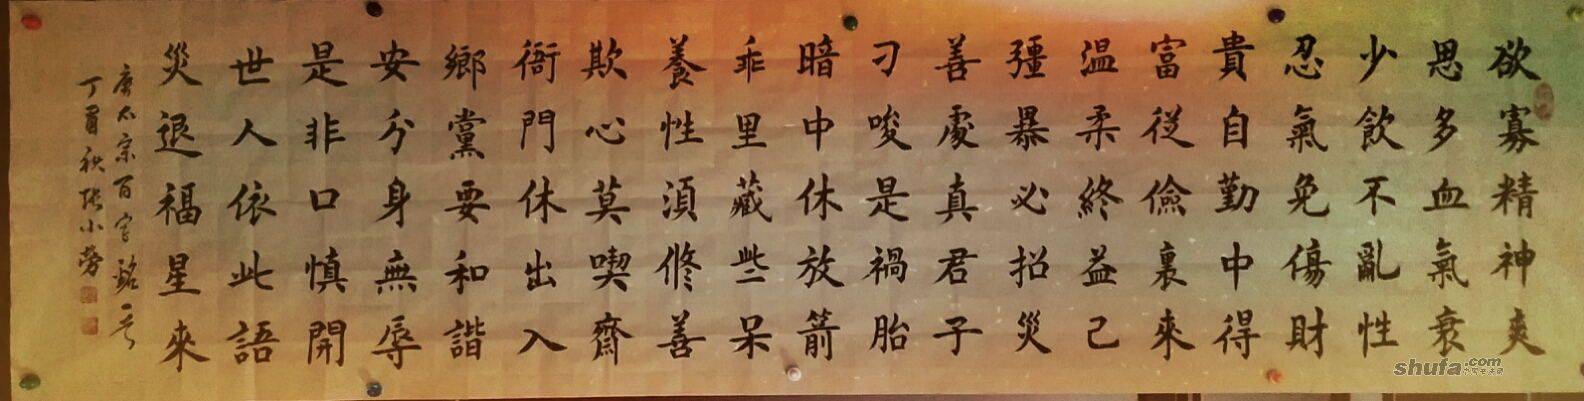 欲寡精神爽
思多血氣衰
少飲不亂性
忍氣免傷財
貴自勤中得
富從儉裏來
温柔終益己
彊暴必招災
善處真君子
刁唆是禍胎
暗中休放箭
乖里藏些呆
養性須修善
欺心莫喫齋
衙門休出入
鄉黨要和諧
安分身無辱
是非口慎開
世人依此語
災退福星來
唐太宗百字銘一首
丁酉秋張小勞
shufa.com